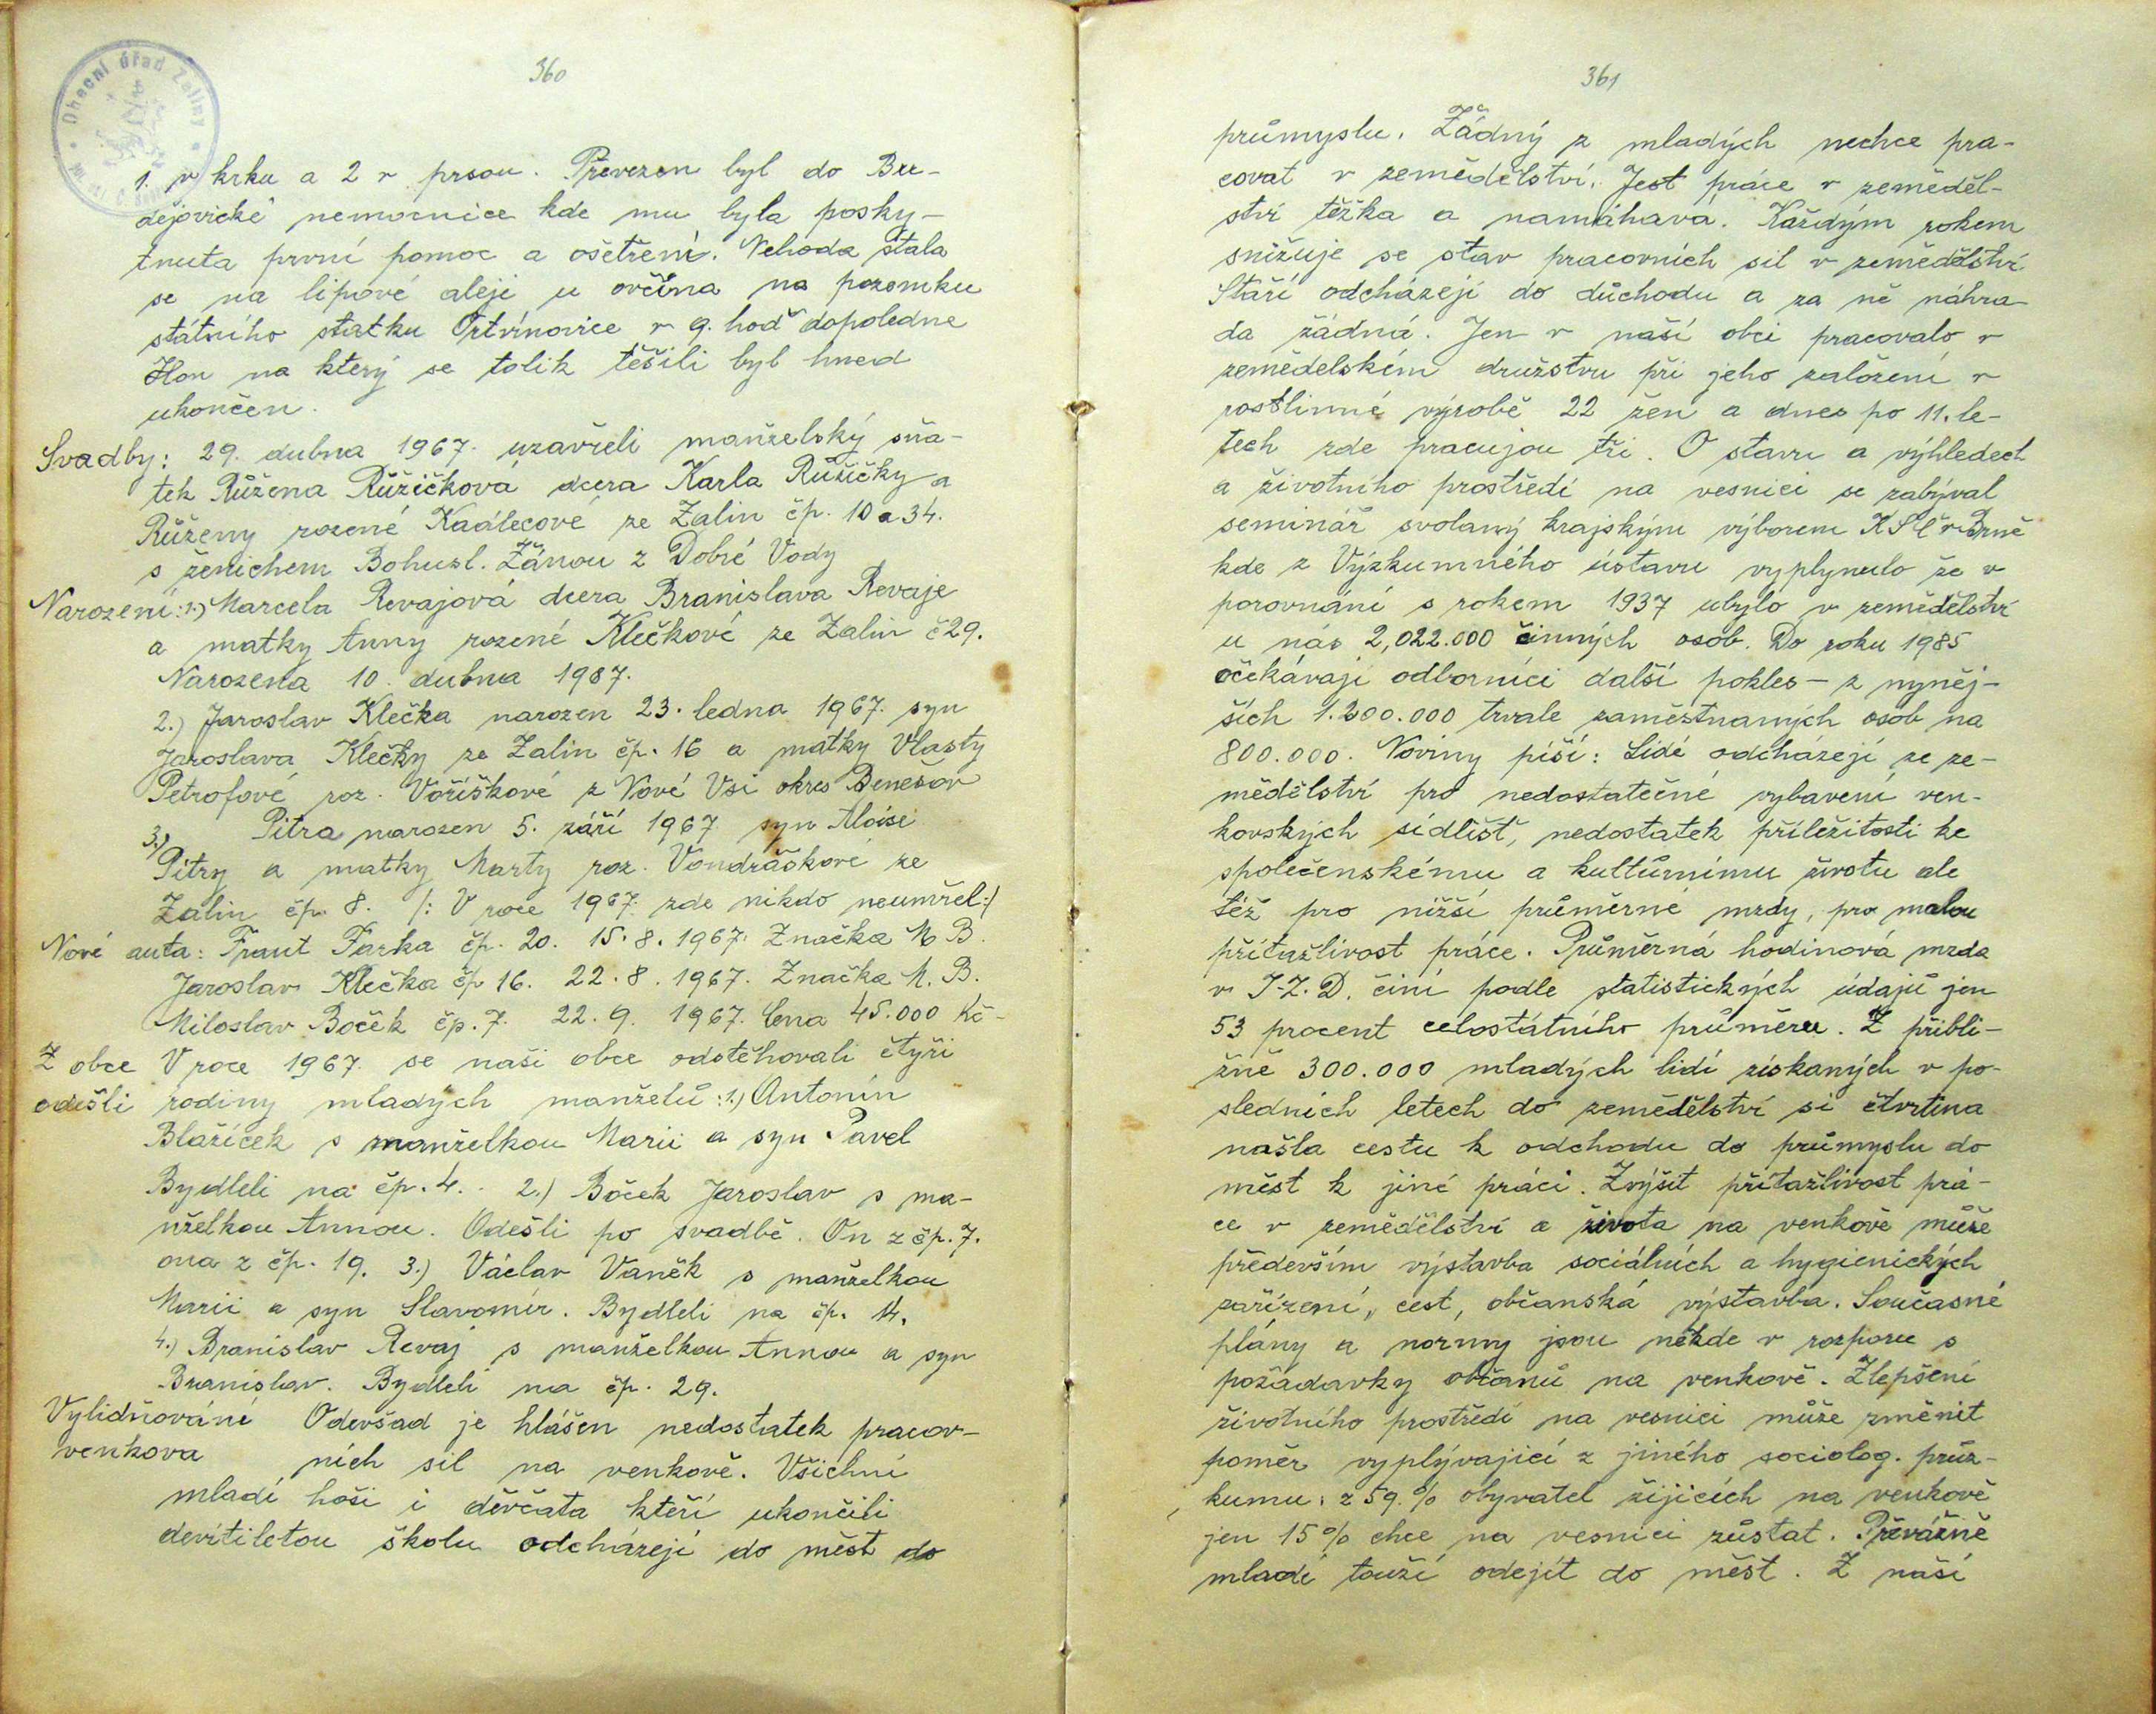 360
Obecní úřad Zaliny
1. v krku a 2 v prsou. Převezen byl do Bu-
dějovické nemocnice kde mu byla posky-
tnuta první pomoc a ošetření. Nehoda stala
se na lipové aleji u ovčína na pozemku
státního statku Ortvínovice v 9. hoď dopoledne
Hon na který se tolik těšili byl hned
ukončen.
Svadby: 29. dubna 1967. uzavřeli manželský sňa-
tek Růžena Růžičková dcera Karla Růžičky a
Růženy rozené Kaálecové ze Zalin čp. 10 a 34.
s ženichem Bohusl. Žánou z Dobré Vody
Narození: 1.) Marcela Revajová dcera Branislava Revaje
a matky Anny rozené Klečkové ze Zalin č 29.
Narozena 10. dubna 1987.
2.) Jaroslav Klečka narozen 23. ledna 1967. syn
Jaroslava Klečky ze Zalin čp. 16 a matky Vlasty
Petrofové roz. Voříškové z Nové Vsi okres Benešov
3.) Pitra narozen 5. září 1967 syn Aloise
Pitry a matky Marty roz. Vondráškové ze
Zalin čp. 8. /: V roce 1967. zde nikdo neumřel:/
Nové auta: Frant Farka čp. 20. 15. 8. 1967. Značka M B.
Jaroslav Klečka čp 16. 22. 8. 1967. Značka M. B.
Miloslav Boček čp. 7. 22. 9. 1967. Cena 45.000 Kč-
Z obce V roce 1967. se naši obce odstěhovali čtyři
odešli rodiny mladých manželů: 1.) Antonín
Blažíček s manželkou Marii a syn Pavel
Bydleli na čp. 4. 2.) Boček Jaroslav s ma-
nželkou Annou. Odešli po svadbě. On z čp. 7.
ona z čp. 19. 3.) Václav Vaněk s manželkou
Marii a syn Slavomír. Bydleli na čp. 14.
4.) Branislav Revaj s manželkou Annou a syn
Branislav. Bydleli na čp. 29.
Vylidňování Odevšad je hlášen nedostatek pracov-
venkova ních sil na venkově. Všichni
mladí hoši i děvčata kteří ukončili
devítiletou školu odcházejí do měst do
361
průmyslu. Žádný z mladých nechce pra-
covat v zemědělství. Jest práce v zeměděl-
ství těžka a namáhava. Každým rokem
snižuje se stav pracovních sil v zemědělství
Staří odcházejí do důchodu a za ně náhra-
da žádná. Jen v naší obci pracovalo v
zemědelském družstvu při jeho založení v
rostlinné výrobě 22 žen a dnes po 11. le-
tech zde pracujou tři. O stavu a výhledech
a životního prostředí na vesnici se zabýval
seminář svolaný krajským výborem KSČ v Brně
kde z Výzkumného ústavu vyplynulo že v
porovnání s rokem 1937 ubylo v zemědělství
u nás 2,022.000 činných osob. Do roku 1985
očekávají odborníci další pokles - z nyněj-
ších 1.200.000 trvale zaměstnaných osob na
800.000. Noviny píší: Lidé odcházejí ze ze-
mědělství pro nedostatečné vybavení ven-
kovských sídlišť, nedostatek příležitosti ke
společenskému a kultůrnímu životu ale
též pro nižší průměrné mzdy, pro malou
přítažlivost práce. Průměrná hodinová mzda
v J-Z. D. činí podle statistických údajů jen
53 procent celostátního průměru. Z přibli-
žně 300.000 mladých lidí získaných v po-
sledních letech do zemědělství si čtvrtina
našla cestu k odchodu do průmyslu do
měst k jiné práci. Zvýšit přítažlivost prá-
ce v zemědělství a života na venkově může
především výstavba sociálních a hygienických
zařízení, cest, občanská výstavba. Současné
plány a normy jsou někde v rozporu s
požadavky občanů na venkově. Zlepšení
životního prostředí na vesnici může změnit
poměr vyplývající z jiného sociolog. průz-
kumu: z 59 % obyvatel žijících na venkově
jen 15 % chce na vesnici zůstat. Převážně
mladé touží odejít do měst. Z naší